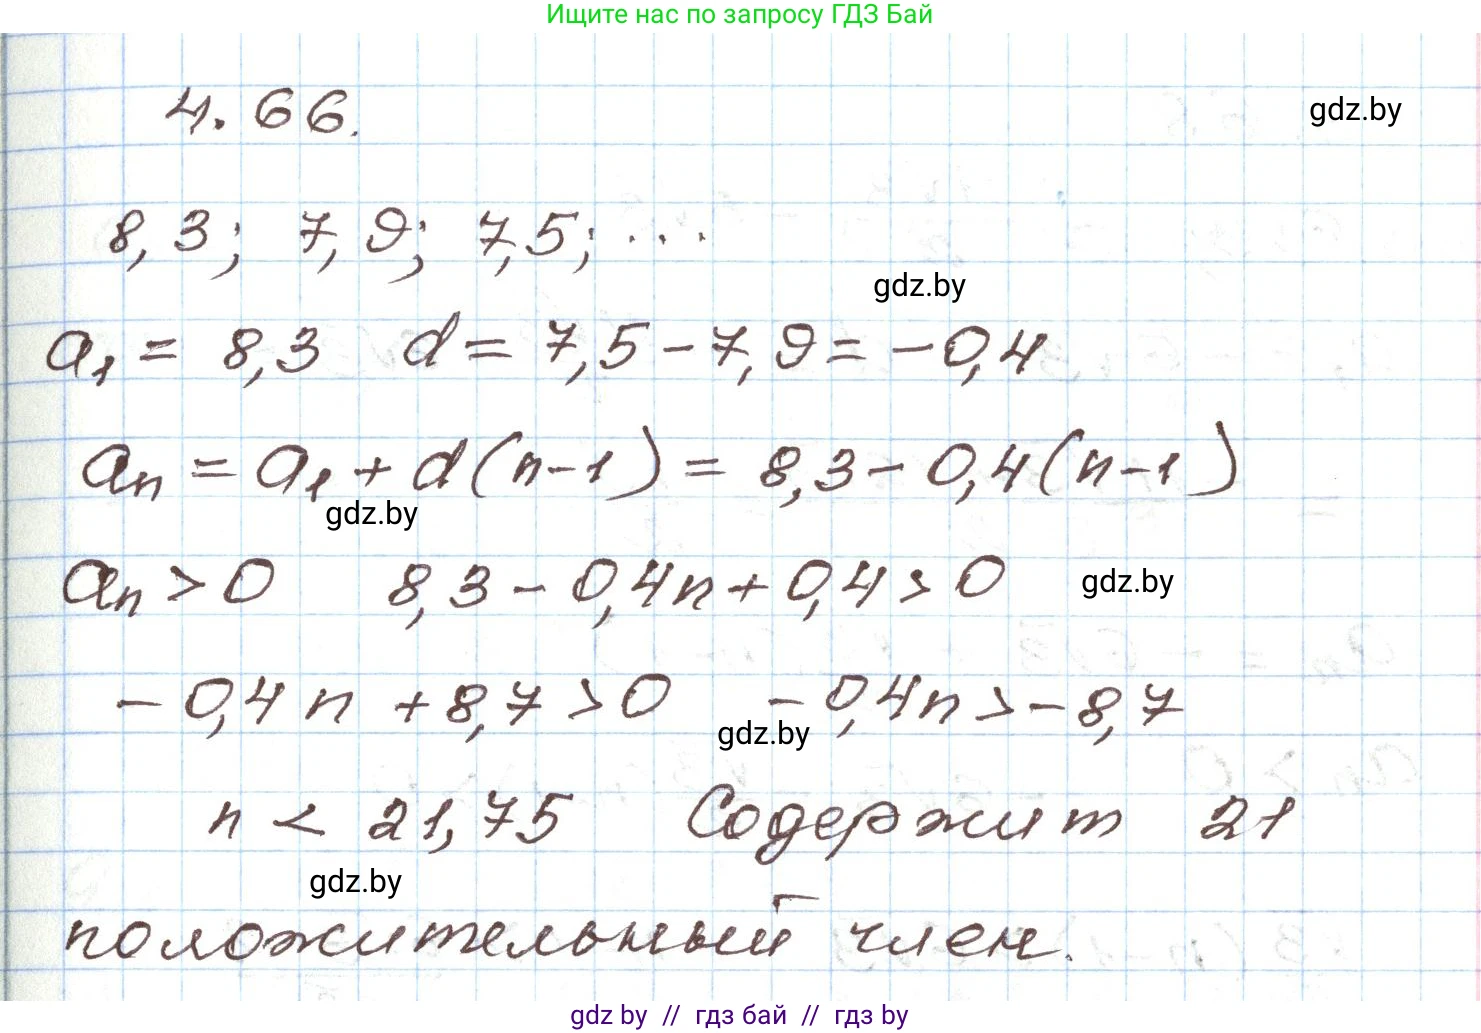 Ищите нас по запросу ГДЗ Бай
4.66.
gdz.by
8,3; 7,9; 7,5; ...
gdz.by
a₁ = 8,3 d = 7,5 - 7,9 = -0,4
aₙ = a₁ + d(n-1) = 8,3 - 0,4(n-1)
gdz.by
aₙ > 0 8,3 - 0,4n + 0,4 > 0
gdz.by
-0,4n + 8,7 > 0 -0,4n > -8,7
gdz.by
n < 21,75 Содержит 21
gdz.by
положительный член.
gdz by // гдз бай // гдз by